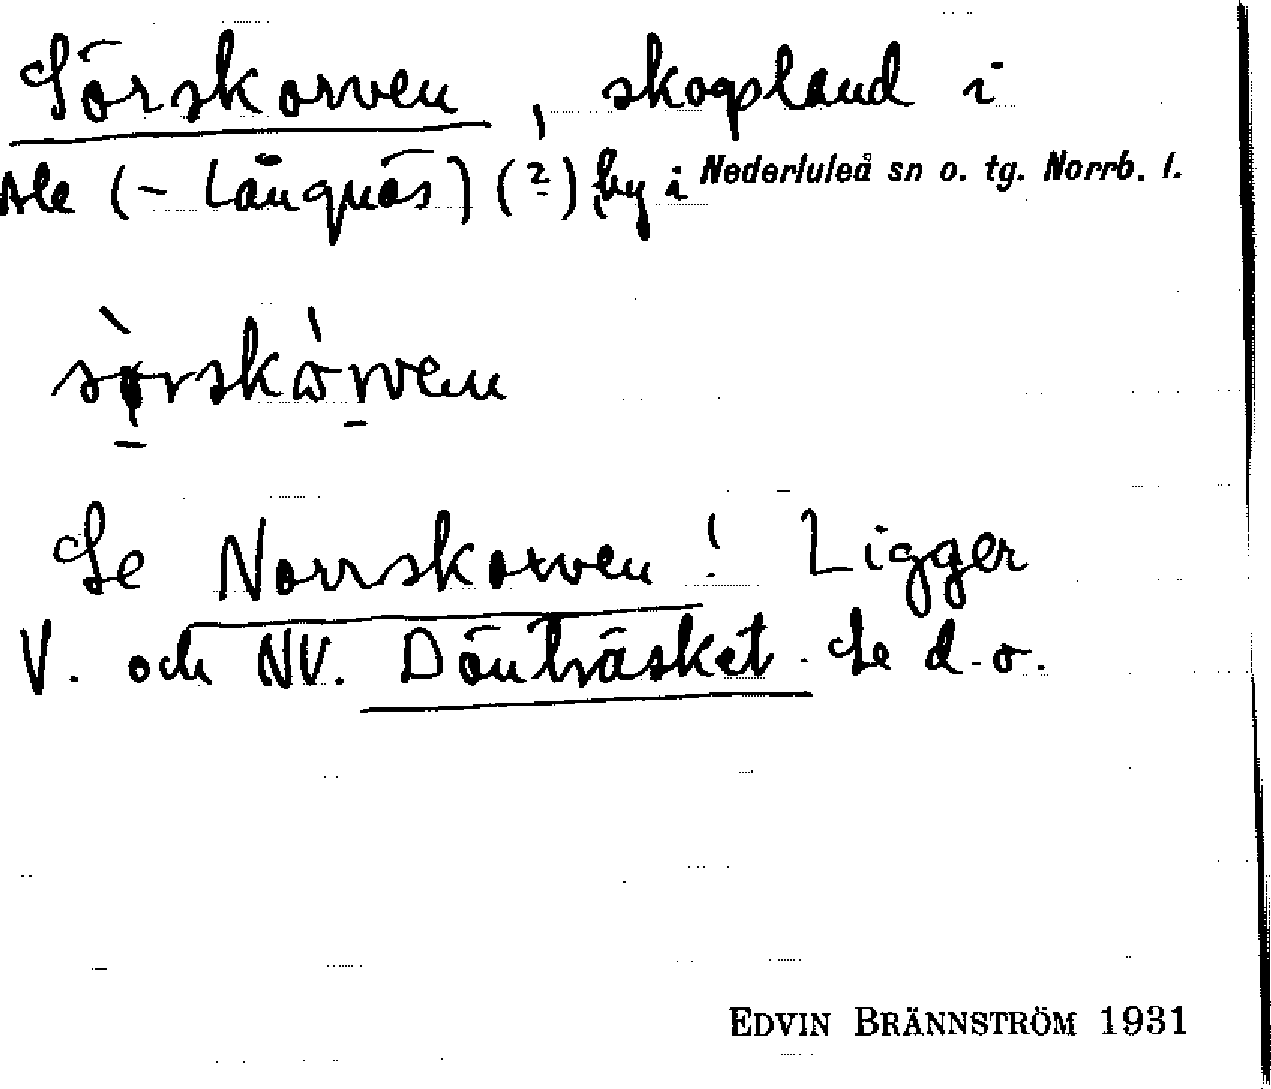 Sörskorven, skogsland i
Ale (- Långnäs) (?) by i Nederluleå sn o. tg. Norrb. l.
sò̱rskòṟven
Se Norrskorven! Ligger
V. och NV. Dönträsket. Se d.o.
EDVIN BRÄNNSTRÖM 1931